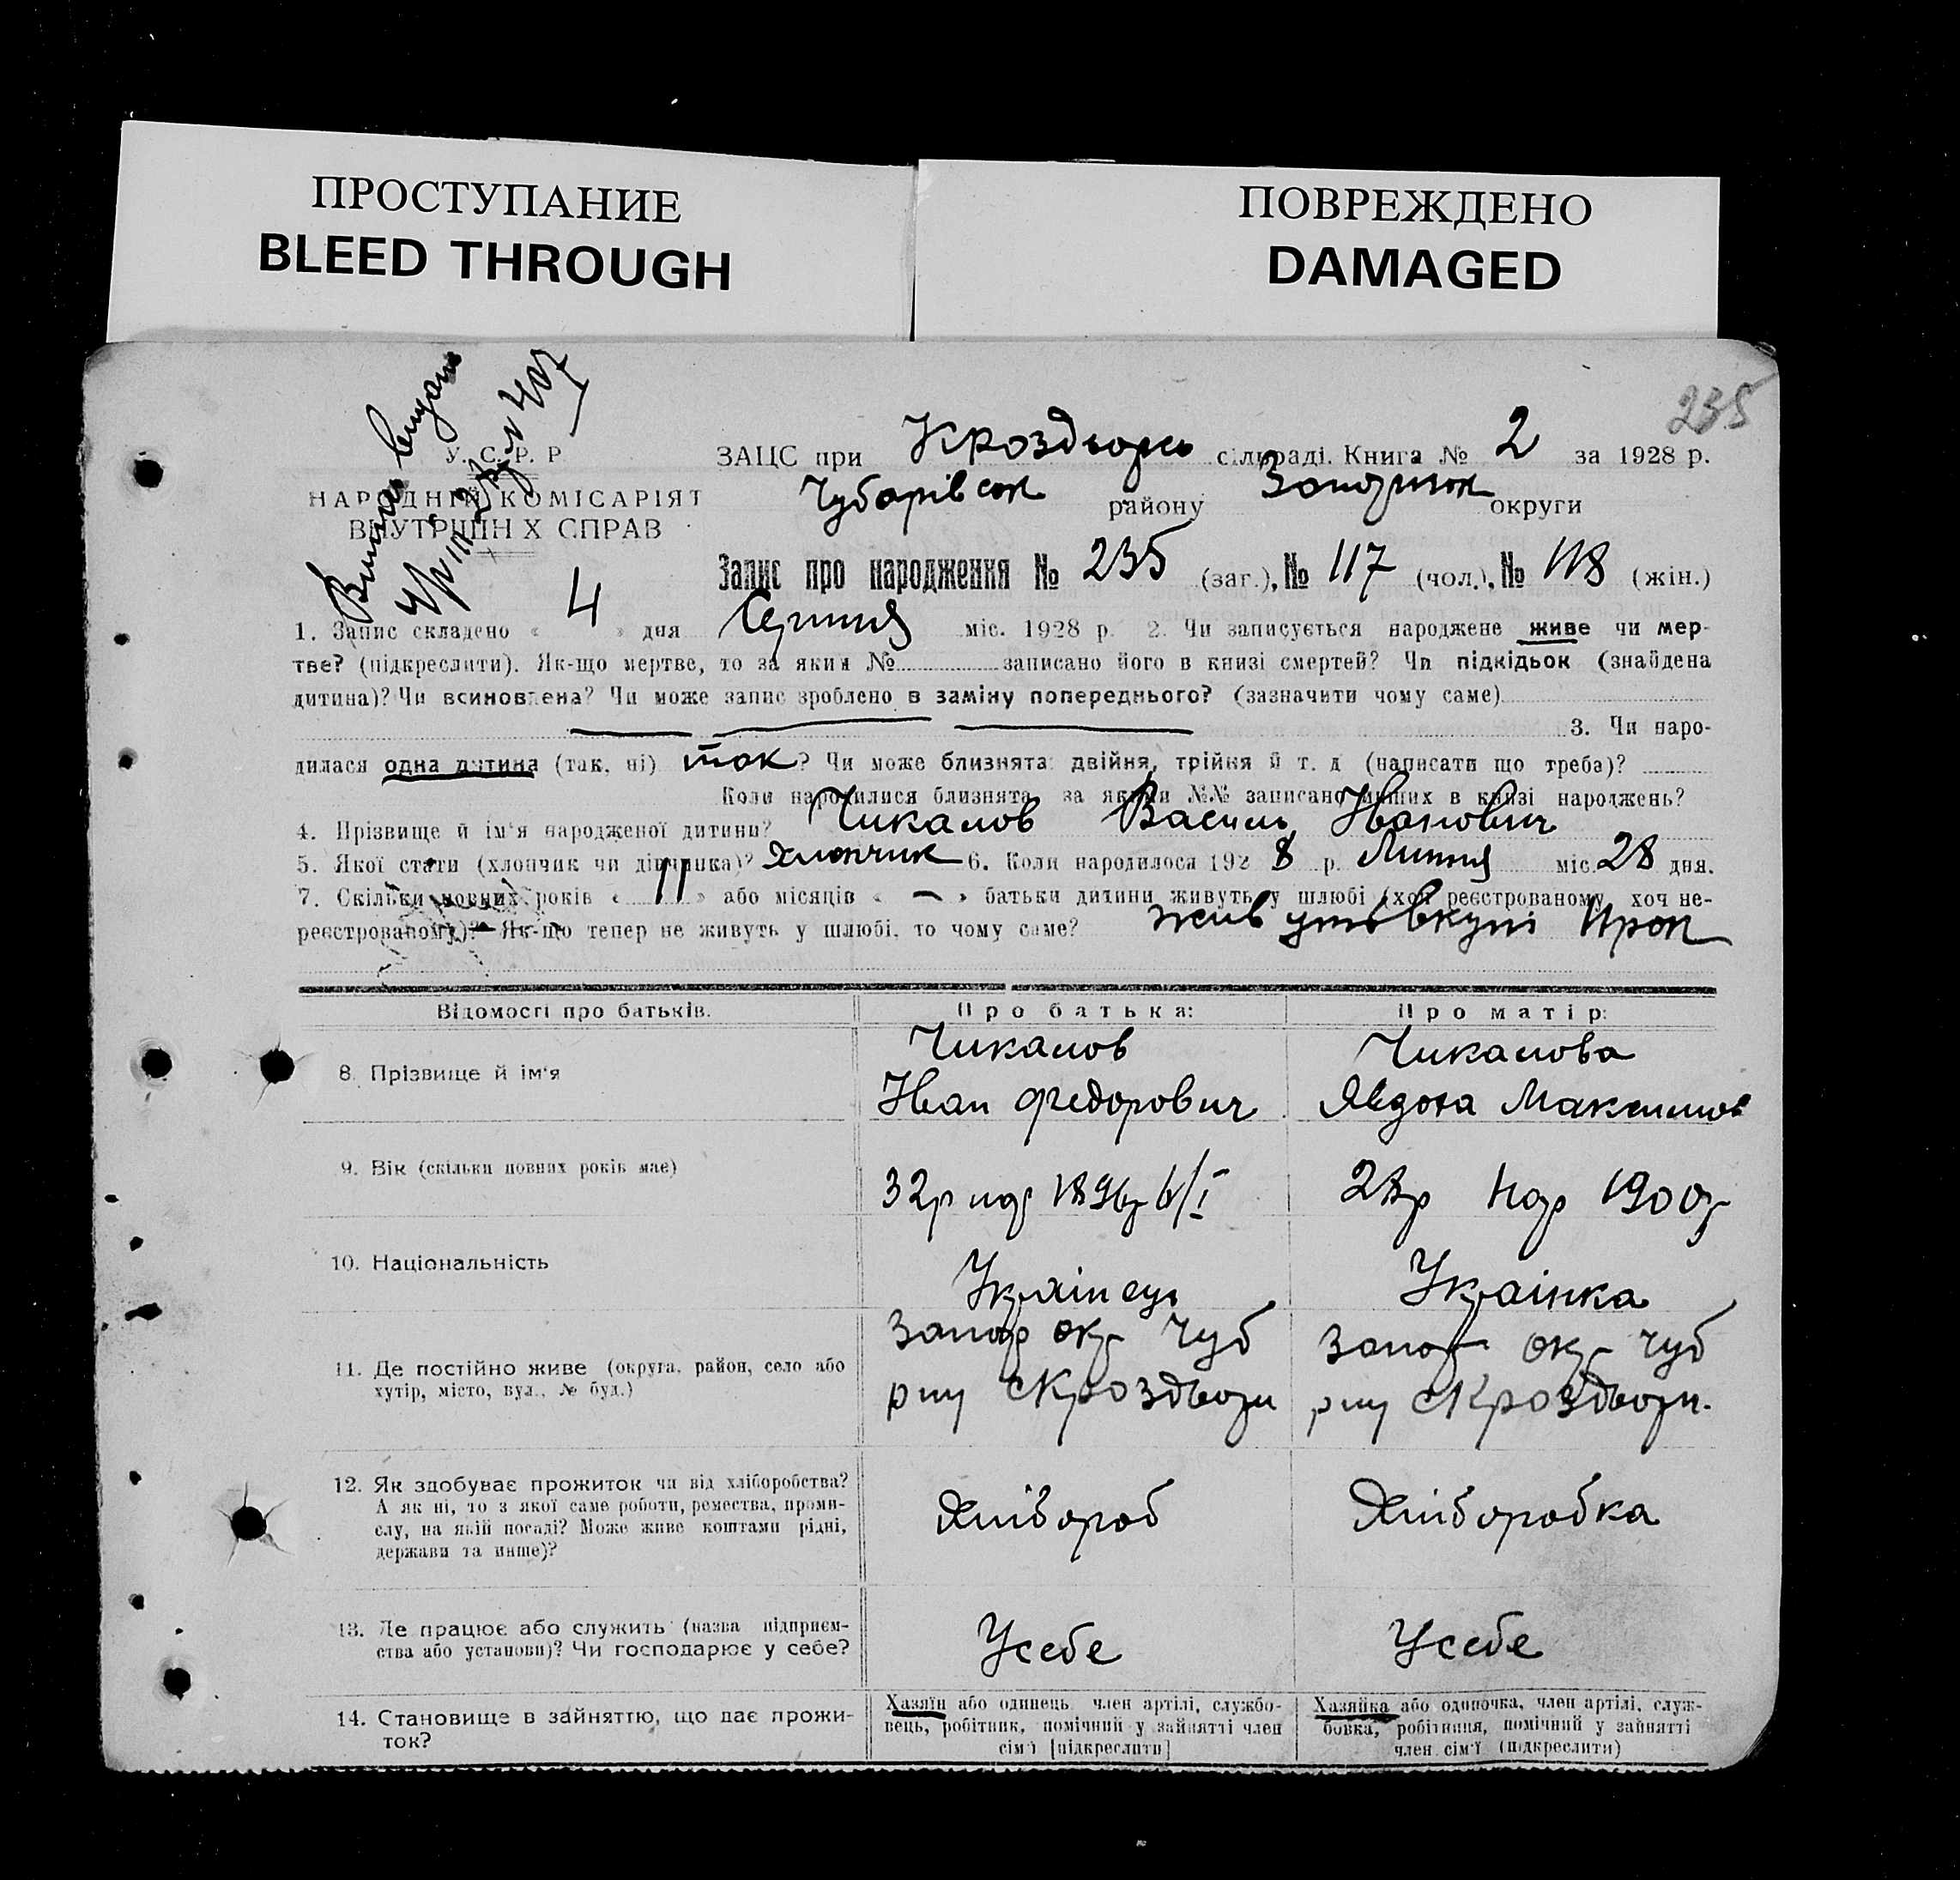 ПРОСТУПАНИЕ
BLEED THROUGH
ПОВРЕЖДЕНО
DAMAGED
235
У. С. Р. Р
НАРОДНІЙ КОМІСАРІЯТ
ВНУТРІШН Х СПРАВ
ЗАЦС при Кроздьорськ сільраді. Книга № 2 за 1928 р.
Чубарівськ району Запоріжж округи
Запис про народження № 235 (заг.), № 117 (чол.), № 118 (жін.)
1. Запис складено « 4 » дня Серпня міс. 1928 р. 2. Чи записується народжене живе чи мер-
тве? (підкреслити). Як-що мертве, то за яким № записано його в книзі смертей? Чи підкідьок (знайдена
дитина)? Чи всиновлена? Чи може запис зроблено в заміну попереднього? (зазначити чому саме)
3. Чи наро-
дилася одна дитина (так, ні) так? Чи може близнята: двійня, трійня й т. д (написати що треба)?
Коли народилися близнята, за якими №№ записано инших в книзі народжень?
4. Прізвище й ім'я народженої дитини? Чикалов Василь Іванович
5. Якої стати (хлопчик чи дівчинка)? Хлопчик 6. Коли народилося 1928 р. Липня міс. 28 дня.
7. Скільки повних років « 11 » або місяців « — » батьки дитини живуть у шлюбі (хоч реєстрованому, хоч не-
реєстрованому)? Як-що тепер не живуть у шлюбі, то чому саме? живуть вкупі
Відомості про батьків.
Про батька:
Про матір:
8. Прізвище й ім'я
Чикалов
Іван Федорович
Чикалова
Явдоха Максимов
9. Вік (скільки повних років має)
32р нар 1896р 6/I
28р нар 1900р
10. Національність
Українець
Українка
11. Де постійно живе (округа, район, село або
хутір, місто, вул., № буд.)
Запор окр Чуб
рну с Кроздьори
Запор окр Чуб
рну с Кроздьори.
12. Як здобуває прожиток чи від хліборобства?
А як ні, то з якої саме роботи, ремества, проми-
слу, на якій посаді? Може живе коштами рідні,
держави та инше)?
Хлібороб
Хліборобка
13. Де працює або служить (назва підприєм-
ства або установи)? Чи господарює у себе?
У себе
У себе
14. Становище в зайняттю, що дає прожи-
ток?
Хазяїн або одинець, член артілі, службо-
вець, робітник, помічний у зайнятті член
сім'ї [підкреслити]
Хазяйка або одиночка, член артілі, служ-
бовка, робітниця, помічний у зайнятті
член сім'ї (підкреслити)